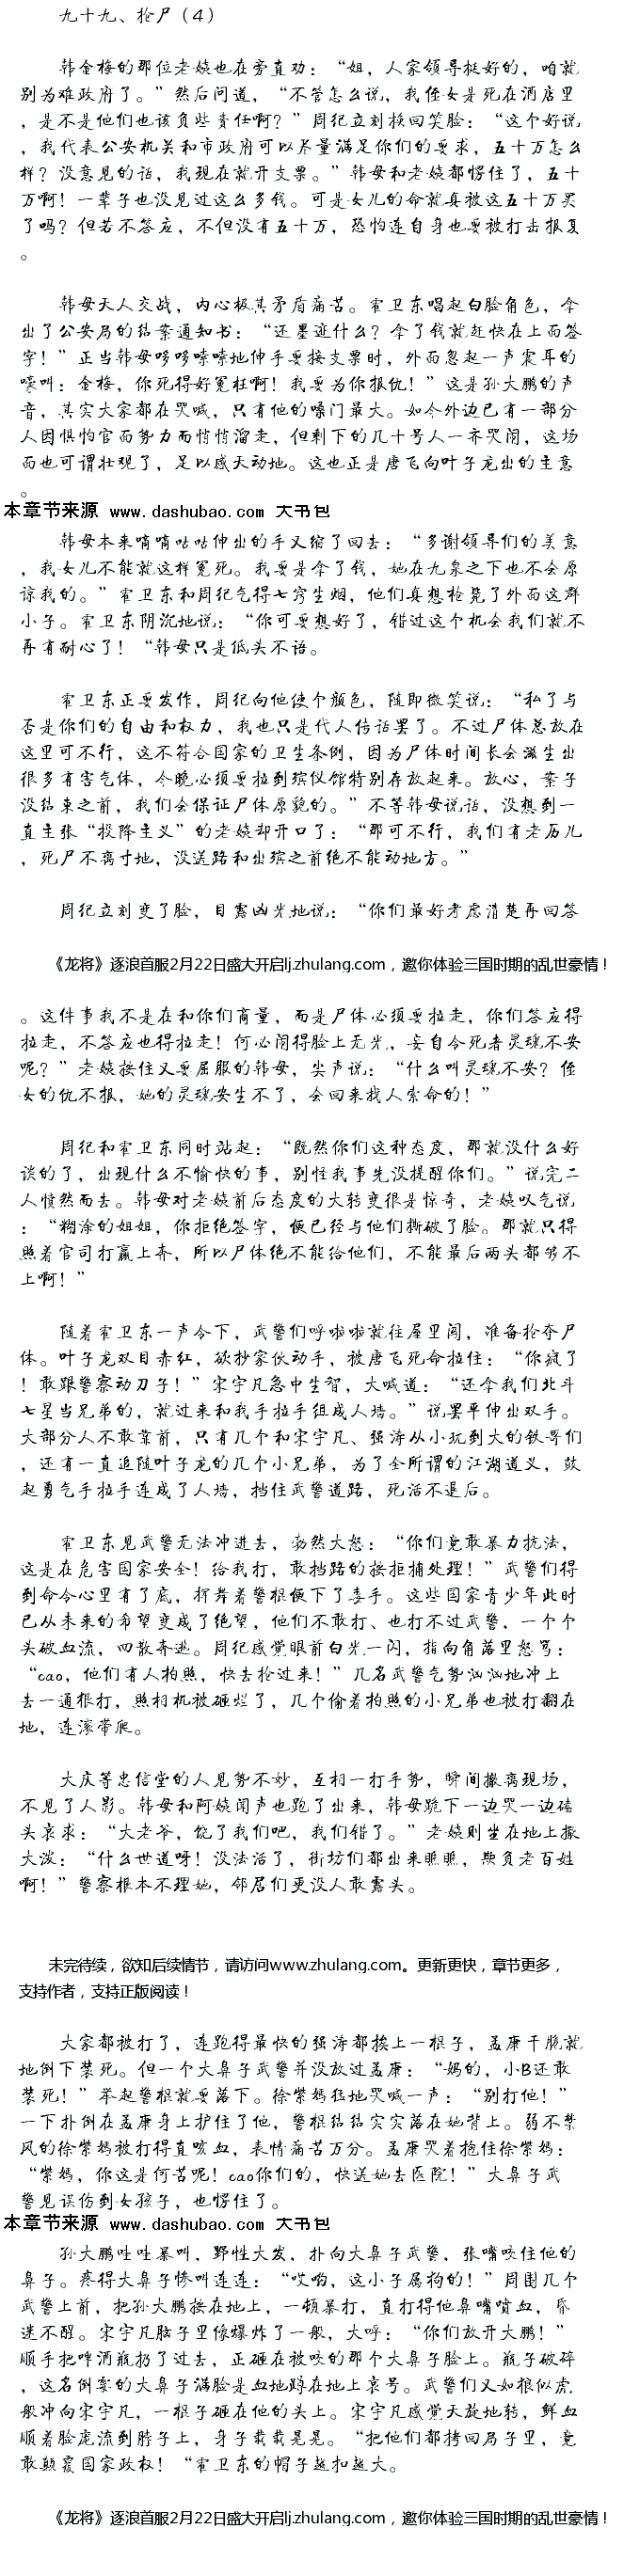 九十九、抢尸（4）
韩金梅的那位老姨也在旁直劝：“姐，人家领导挺好的，咱就
别为难政府了。”然后问道，“不管怎么说，我侄女是死在酒店里
，是不是他们也该负些责任啊？”周纪立刻换回笑脸：“这个好说
，我代表公安机关和市政府可以尽量满足你们的要求，五十万怎么
样？没意见的话，我现在就开支票。”韩母和老姨都愣住了，五十
万啊！一辈子也没见过这么多钱。可是女儿的命就真被这五十万买
了吗？但若不答应，不但没有五十万，恐怕连自身也要被打击报复
。
韩母天人交战，内心极其矛盾痛苦。霍卫东唱起白脸角色，拿
出了公安局的结案通知书：“还墨迹什么？拿了钱就赶快在上面签
字！”正当韩母哆哆嗦嗦地伸手要接支票时，外面忽起一声震耳的
嚎叫：金梅，你死得好冤枉啊！我要为你报仇！”这是孙大鹏的声
音，其实大家都在哭喊，只有他的嗓门最大。如今外边已有一部分
人因惧怕官面势力而悄悄溜走，但剩下的几十号人一齐哭闹，这场
面也可谓壮观了，足以感天动地。这也正是唐飞向叶子龙出的主意
。
本章节来源 www.dashubao.com 大书包
韩母本来嘀嘀咕咕伸出的手又缩了回去：“多谢领导们的美意
，我女儿不能就这样冤死。我要是拿了钱，她在九泉之下也不会原
谅我的。”霍卫东和周纪气得七窍生烟，他们真想枪毙了外面这群
小子。霍卫东阴沉地说：“你可要想好了，错过这个机会我们就不
再有耐心了！“韩母只是低头不语。
霍卫东正要发作，周纪向他使个颜色，随即微笑说：“私了与
否是你们的自由和权力，我也只是代人传话罢了。不过尸体总放在
这里可不行，这不符合国家的卫生条例，因为尸体时间长会滋生出
很多有害气体，今晚必须要拉到殡仪馆特别存放起来。放心，案子
没结束之前，我们会保证尸体原貌的。”不等韩母说话，没想到一
直主张“投降主义”的老姨却开口了：“那可不行，我们有老历儿
，死尸不离寸地，没送路和出殡之前绝不能动地方。”
周纪立刻变了脸，目露凶光地说：“你们最好考虑清楚再回答
《龙将》逐浪首服2月22日盛大开启lj.zhulang.com，邀你体验三国时期的乱世豪情！
。这件事我不是在和你们商量，而是尸体必须要拉走，你们答应得
拉走，不答应也得拉走！何必闹得脸上无光，妄自令死者灵魂不安
呢？”老姨按住又要屈服的韩母，尖声说：“什么叫灵魂不安？侄
女的仇不报，她的灵魂安生不了，会回来找人索命的！”
周纪和霍卫东同时站起：“既然你们这种态度，那就没什么好
谈的了，出现什么不愉快的事，别怪我事先没提醒你们。”说完二
人愤然而去。韩母对老姨前后态度的大转变很是惊奇，老姨叹气说
：“糊涂的姐姐，你拒绝签字，便已经与他们撕破了脸。那就只得
照着官司打赢上奔，所以尸体绝不能给他们，不能最后两头都够不
上啊！”
随着霍卫东一声令下，武警们呼啦啦就往屋里闯，准备抢夺尸
体。叶子龙双目赤红，欲抄家伙动手，被唐飞死命拉住：“你疯了
！敢跟警察动刀子！”宋宇凡急中生智，大喊道：“还拿我们北斗
七星当兄弟的，就过来和我手拉手组成人墙。”说罢平伸出双手。
大部分人不敢靠前，只有几个和宋宇凡、强涛从小玩到大的铁哥们
，还有一直追随叶子龙的几个小兄弟，为了全所谓的江湖道义，鼓
起勇气手拉手连成了人墙，挡住武警道路，死活不退后。
霍卫东见武警无法冲进去，勃然大怒：“你们竟敢暴力抗法，
这是在危害国家安全！给我打，敢挡路的按拒捕处理！”武警们得
到命令心里有了底，挥舞着警棍便下了毒手。这些国家青少年此时
已从未来的希望变成了绝望，他们不敢打、也打不过武警，一个个
头破血流，四散奔逃。周纪感觉眼前白光一闪，指向角落里怒骂：
“cao，他们有人拍照，快去抢过来！”几名武警气势汹汹地冲上
去一通狠打，照相机被砸烂了，几个偷着拍照的小兄弟也被打翻在
地，连滚带爬。
大庆等忠信堂的人见势不妙，互相一打手势，瞬间撤离现场，
不见了人影。韩母和阿姨闻声也跑了出来，韩母跪下一边哭一边磕
头哀求：“大老爷，饶了我们吧，我们错了。”老姨则坐在地上撒
大泼：“什么世道呀！没法活了，街坊们都出来瞧瞧，欺负老百姓
啊！”警察根本不理她，邻居们更没人敢露头。
未完待续，欲知后续情节，请访问www.zhulang.com。更新更快，章节更多，
支持作者，支持正版阅读！
大家都被打了，连跑得最快的强涛都挨上一棍子，孟康干脆就
地倒下装死。但一个大鼻子武警并没放过孟康：“妈的，小B还敢
装死！”举起警棍就要落下。徐紫嫣猛地哭喊一声：“别打他！”
一下扑倒在孟康身上护住了他，警棍结结实实落在她背上。弱不禁
风的徐紫嫣被打得直咳血，表情痛苦万分。孟康哭着抱住徐紫嫣：
“紫嫣，你这是何苦呢！cao你们的，快送她去医院！”大鼻子武
警见误伤到女孩子，也愣住了。
本章节来源 www.dashubao.com 大书包
孙大鹏哇哇暴叫，野性大发，扑向大鼻子武警，张嘴咬住他的
鼻子。疼得大鼻子惨叫连连：“哎哟，这小子属狗的！”周围几个
武警上前，把孙大鹏按在地上，一顿暴打，直打得他鼻嘴喷血，昏
迷不醒。宋宇凡脑子里像爆炸了一般，大呼：“你们放开大鹏！”
顺手把啤酒瓶扔了过去，正砸在被咬的那个大鼻子脸上。瓶子破碎
，这名倒霉的大鼻子满脸是血地蹲在地上哀号。武警们又如狼似虎
般冲向宋宇凡，一棍子砸在他的头上。宋宇凡感觉天旋地转，鲜血
顺着脸庞流到脖子上，身子载载晃晃。“把他们都拷回局子里，竟
敢颠覆国家政权！“霍卫东的帽子越扣越大。
《龙将》逐浪首服2月22日盛大开启lj.zhulang.com，邀你体验三国时期的乱世豪情！